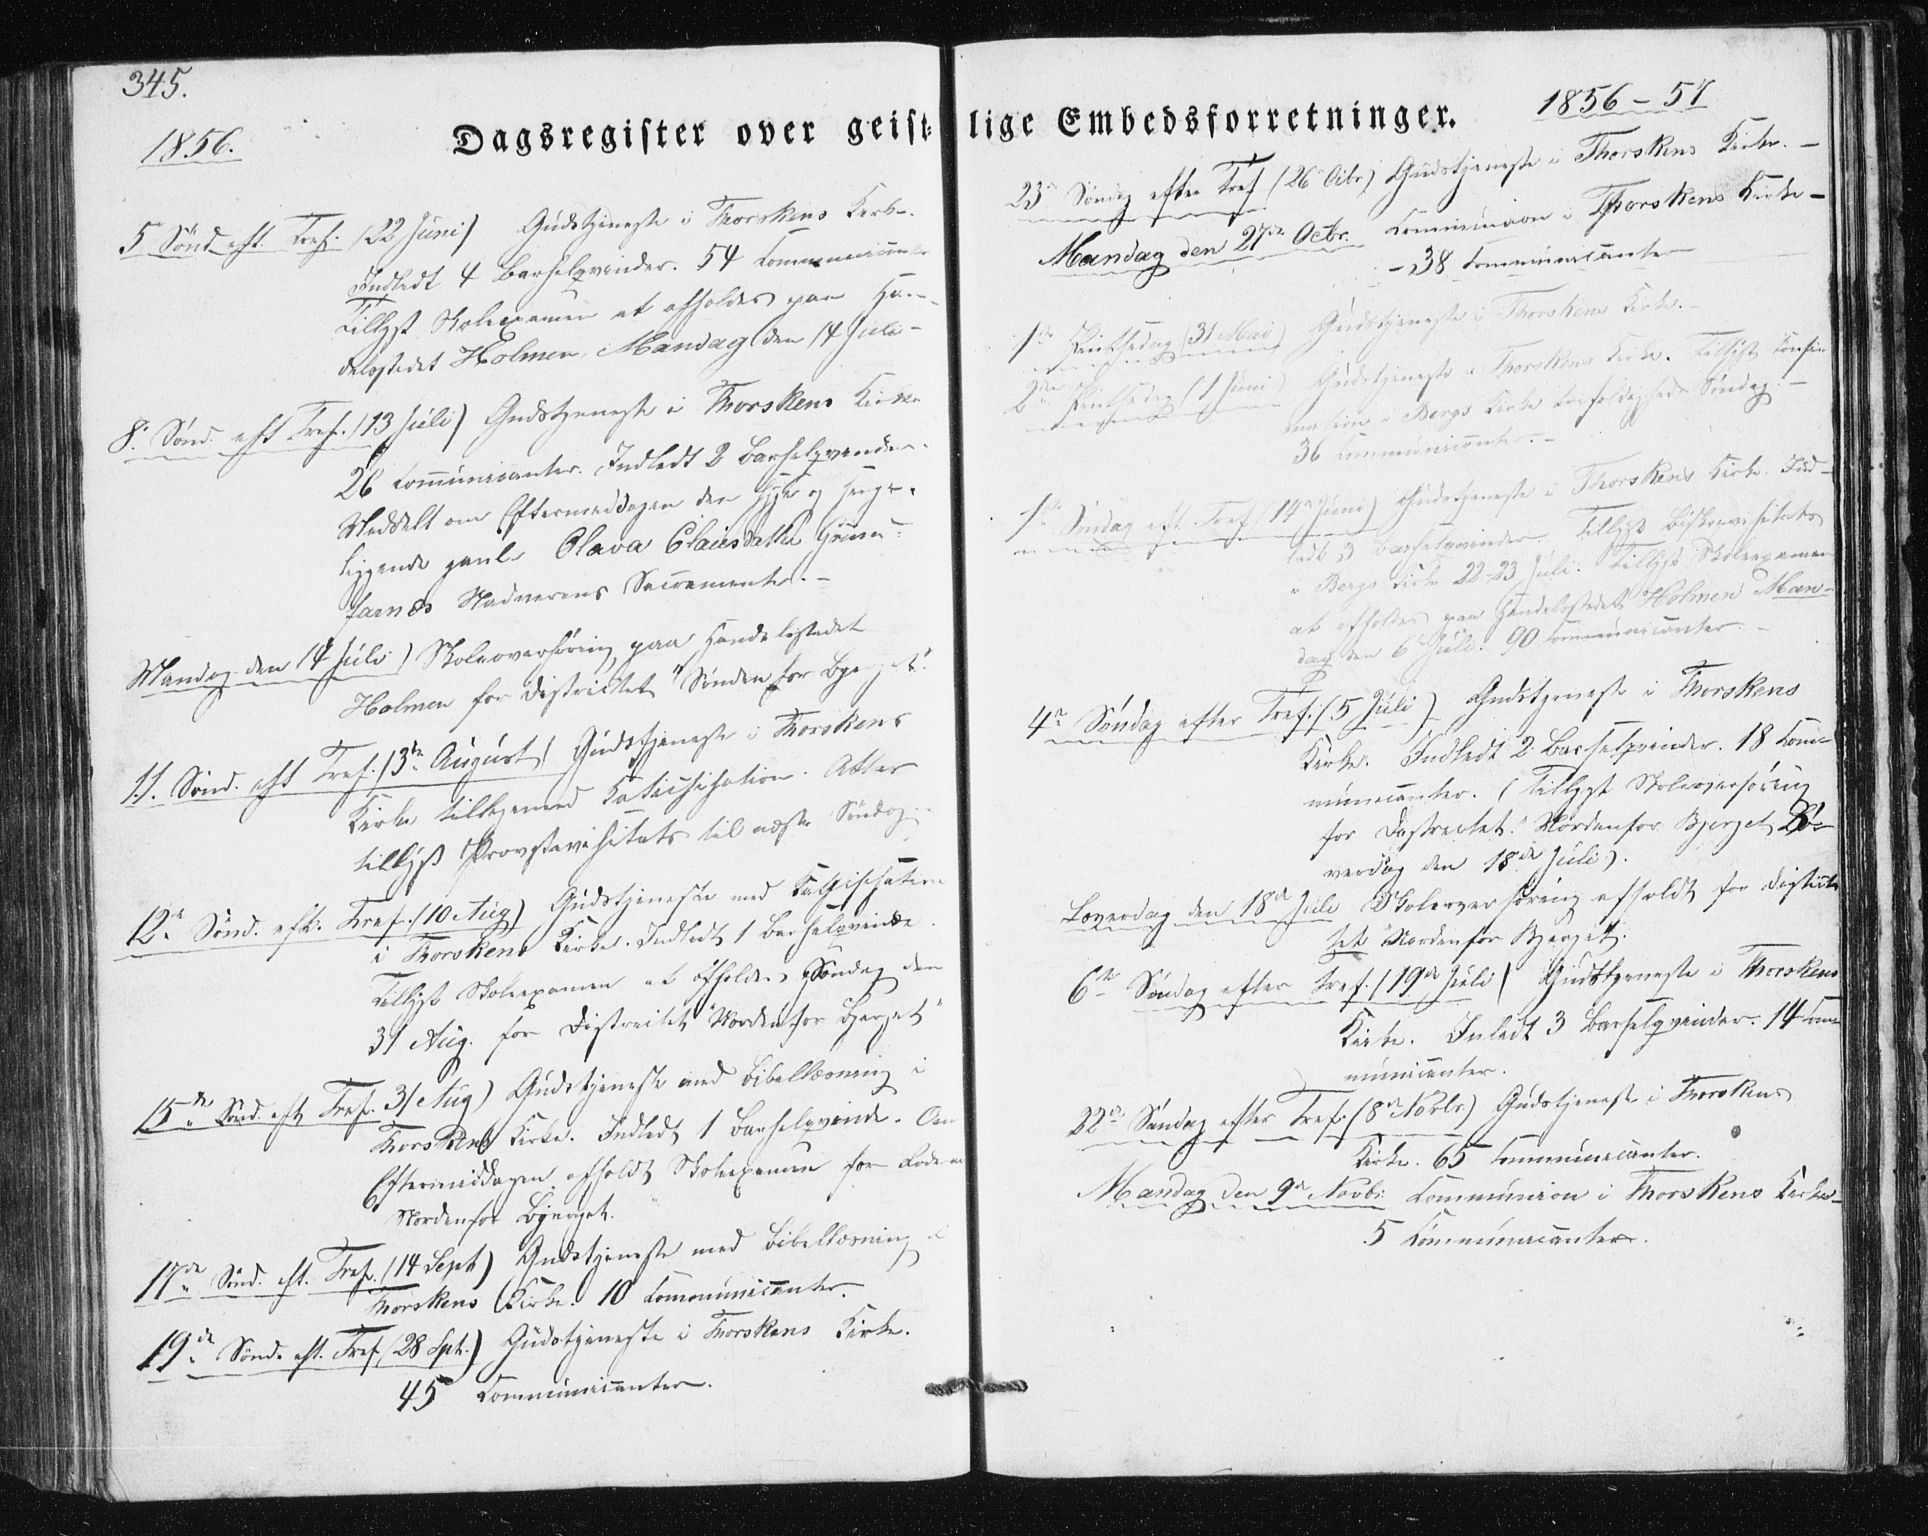 345.
1856.
Dagsregister over geist-
5 Sönd. eft. Tref. (22 Juni) Gudstjeneste i Thorskens Kirke.
Indledt 4 Barselqvinder. 54 Communicanter
Tillyst Skoleexamen at afholdes paa Han-
delsstedet Holmen, Mandag den 14 Juli -
8. Sönd. eft. Tref. (13 Juli) Gudstjeneste i Thorskens Kirke
26 Communicanter. Indledt 2 Barselqvinder.
Meddelt om Eftermiddagen den syge og senge-
liggende Olava
Nadverens Sacramente. -
Mandag den 14 Juli) Skoleoverhöring paa Handelsstedet
Holmen for Districtet "Sönden for Bjerget".
11. Sönd. eft Tref. (3de August) Gudstjeneste i Thorskens
Kirke tilligemed Katechisation. Atter
tillyst Provstevisitats til næste Söndag. -
12te Sönd. eft. Tref. (10 Aug) Gudstjeneste med Katechisation
i Thorskens Kirke. Indledt 1 Barselqvinde.
Tillyst Skoleexamen at afholdes Söndag den
31 Aug. for Districtet "Norden for Bjerget"
15de Sönd. eft Tref. 31 Aug) Gudstjeneste med Bibellæsning i
Thorskens Kirke. Indledt 1 Barselqvinde. Om
Eftermiddagen afholdt Skoleexamen for
Nordenfor Bjerget.
17de Sönd. eft. Tref. (14 Sept) Gudstjeneste med Bibellæsning i
Thorskens Kirke. 10 Communicanter.
19de Sönd. eft. Tref (28 Spt.) Gudstjeneste i Thorskens Kirke.
45 Communicanter.
lige Embedsforretninger.
1856-57
23de Söndag efter Tref (26 Octbr) Gudstjeneste i Thorskens Kirke. -
Mandag den 27de Octbr. Communion i Thorskens Kirke -
- 38 Communicanter
1ste Pintsedag (31 Mai) Gudstjeneste i Thorskens Kirke. -
2den Pintsedag (1 Juni) Gudstjeneste i Thorskens Kirke. Tillyst Confir-
mation i Bergs Kirke Trefoldigheds Söndag. -
36 Communicanter. -
1ste Söndag eft. Tref (14de Juni) Gudstjeneste i Thorskens Kirke. Ind-
ledt 3 Barselqvinder. Tillyst Bispevisitats
i Bergs Kirke 22-23 Juli. Tillyst Skoleexamen
at afholdes paa Handelsstedet Holmen Man-
dag den 6te Juli. 90 Communicanter. -
4de Söndag efter Tref. (5 Juli) Gudstjeneste i Thorskens
Kirke. Indledt 2 Barselqvinder. 18 Com-
municanter. (Tillyst Skoleoverhöring
for Districtet "Nordenfor Bjerget" Lö-
verdag den 18de Juli).
Löverdag den 18de Juli Skoleoverhöring afholdt for Distric-
tet "Nordenfor Bjerget".
6te Söndag efter Tref. (19de Juli) Gudstjeneste i Thorskens
Kirke. Inledt 3 Barselqvinder. 14 Com-
municanter.
22de Söndag efter Tref. (8de Novbr.) Gudstjeneste i Thorskens
Kirke. 65 Communicanter.
Mandag den 9de Novbr. Communion i Thorskens Kirke -
5 Communicanter.